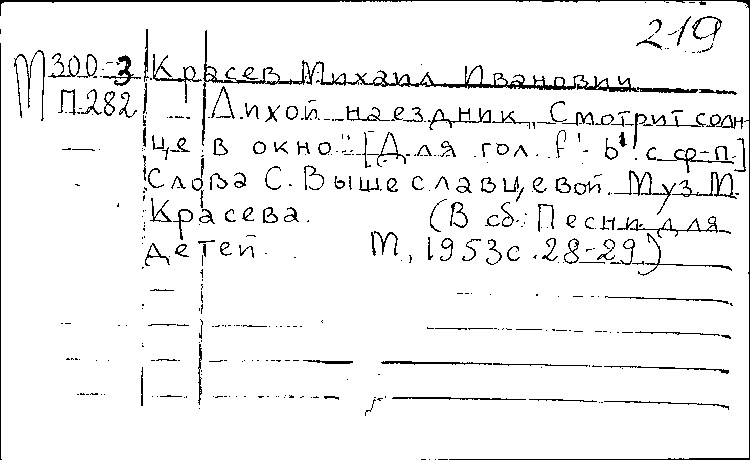 219
М 300-3 Красев Михаил Иванович
П282 Лихой наездник „Смотрит солн-
це в окно" [Для гол. f'-b'' с ф-п.]
Слова С. Вышеславцевой. Муз. М.
Красева. (В сб.: Песни для
детей. М., 1953 с. 28-29.)